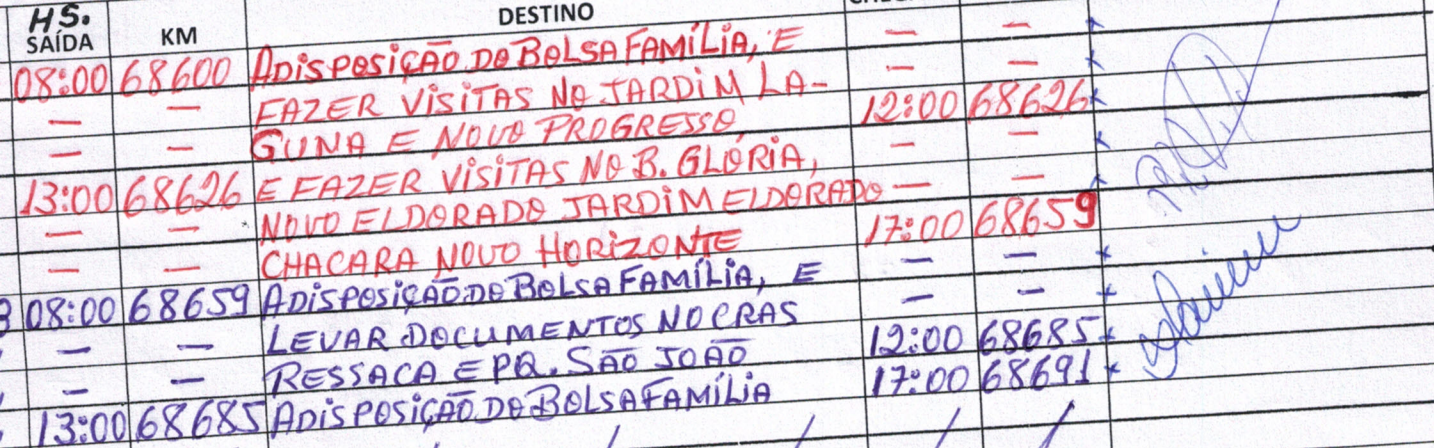 HS. SAÍDA KM DESTINO
08:00 68600 ADISPOSIÇÃO DO BOLSA FAMÍLIA, E — —
— — FAZER VISITAS NO JARDIM LA- — —
— — GUNA E NOVO PROGRESSO 12:00 68626
13:00 68626 E FAZER VISITAS NO B. GLÓRIA, — —
— — NOVO ELDORADO JARDIM ELDORADO — —
— — CHACARA NOVO HORIZONTE 17:00 68659
08:00 68659 ADISPOSIÇÃO DO BOLSA FAMÍLIA, E — —
— — LEVAR DOCUMENTOS NO CRAS — —
— — RESSACA E PQ. SÃO JOÃO 12:00 68685
13:00 68685 ADISPOSIÇÃO DO BOLSA FAMÍLIA 17:00 68691